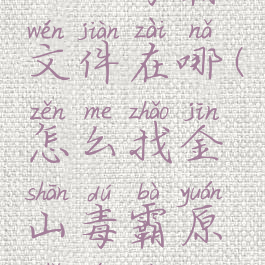 wén jiàn zài nǎ
文件在哪(
zěn me zhǎo jīn
怎么找金
shān dú bà yuán
山毒霸原